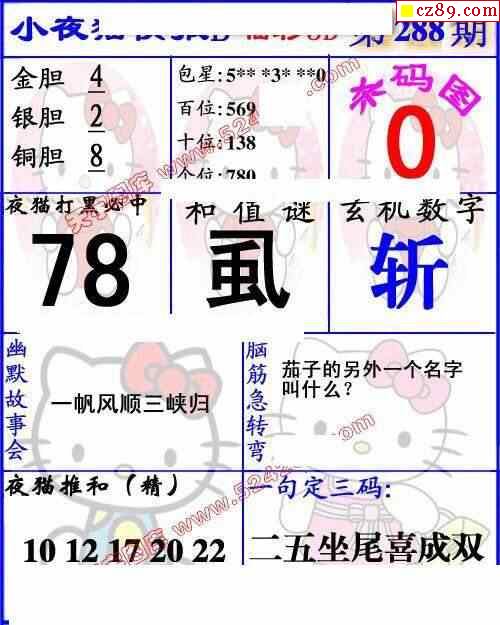 cz89.com
小夜猫
第288期
金胆 4
银胆 2
铜胆 8
包星：5** *3* **0
百位：569
十位：138
个位：780
本码图
0
夜猫打黑必中
78
和值谜
虱
玄机数字
斩
幽默故事会
一帆风顺三峡归
脑筋急转弯
茄子的另外一个名字
叫什么？
夜猫推和（精）
10 12 17 20 22
一句定三码：
二五坐尾喜成双